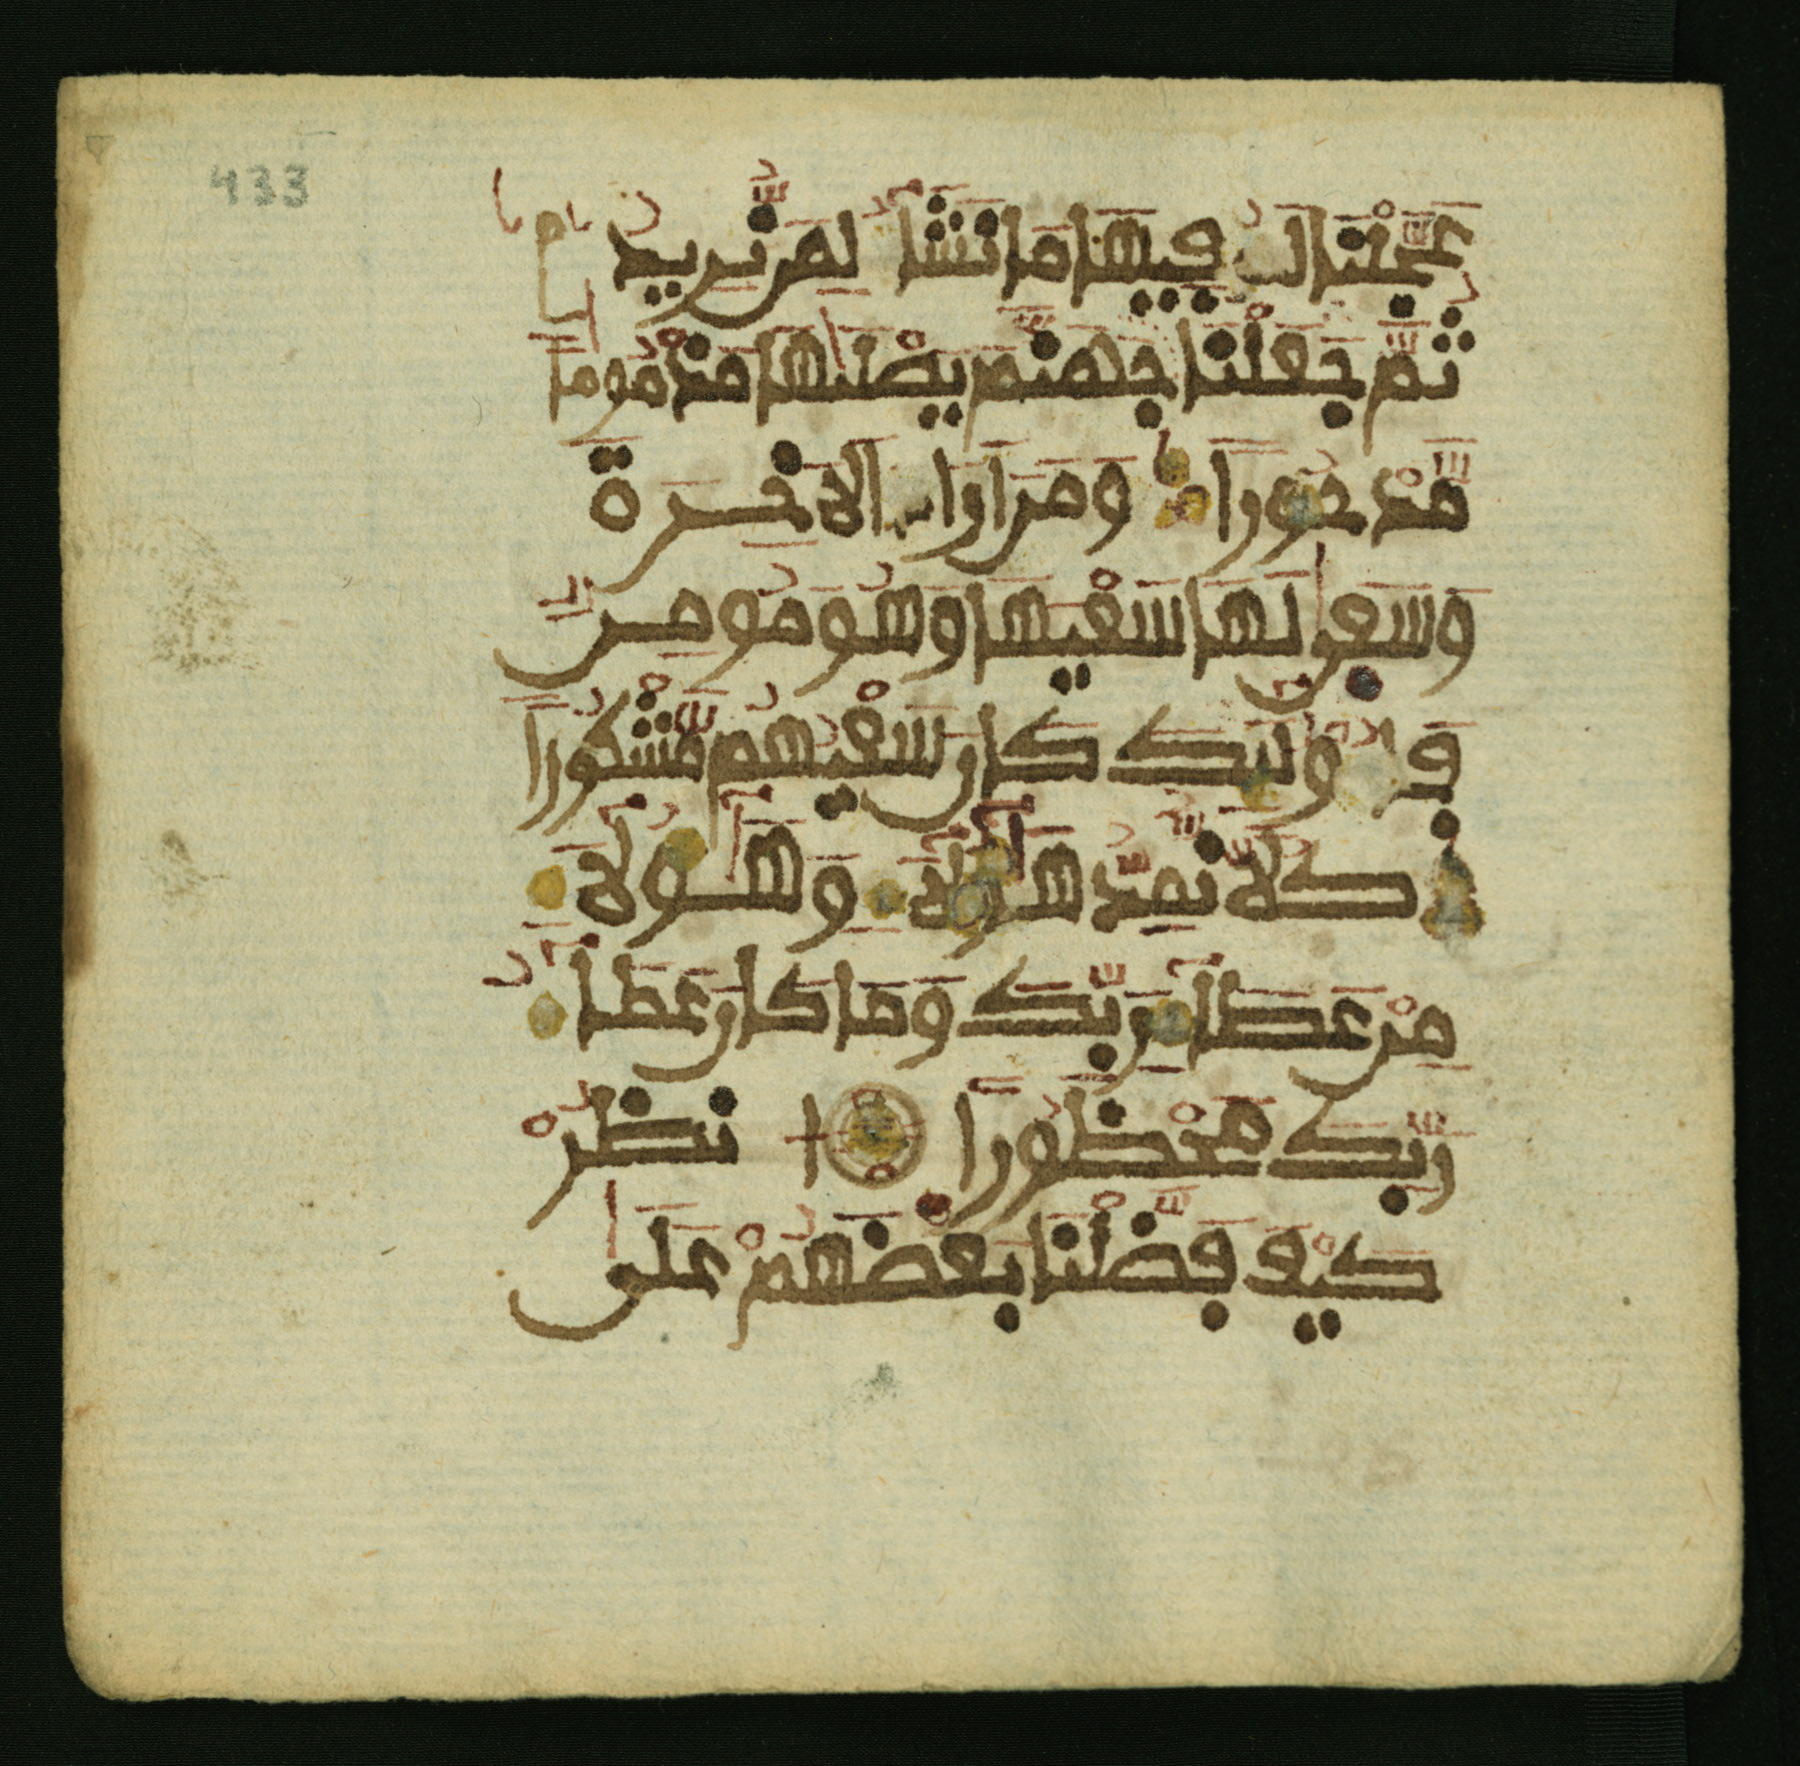 433
عجلنا له فيها ما نشا لمن نريد
ثم جعلنا جهنم يصليها مذموما
مدحورا ومن اراد الاخرة
وسعى لها سعيها وهو مومن
فاوليك كان سعيهم مشكورا
كلا نمد هولا وهولا
من عطا ربك وما كان عطا
ربك محظورا انظر
كيف فضلنا بعضهم على